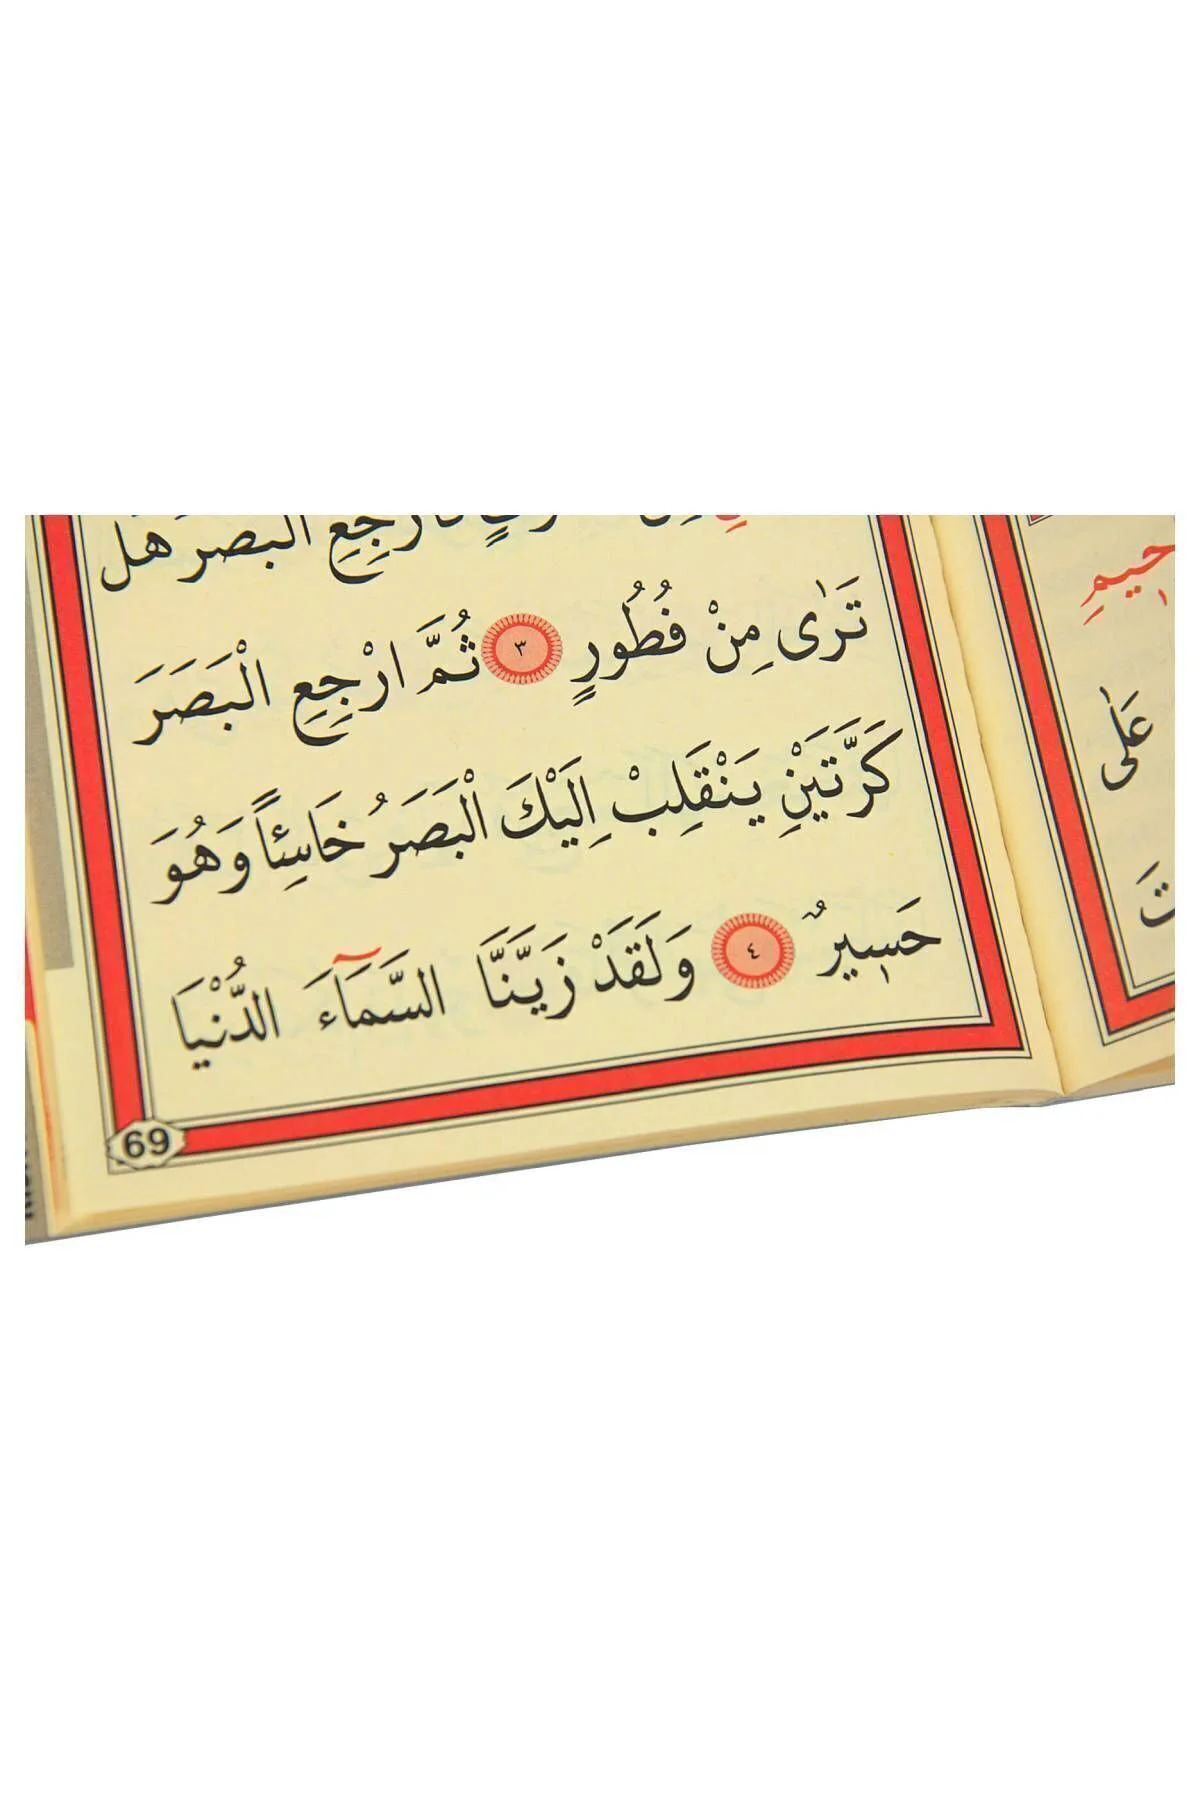 ارْجِعِ الْبَصَرَ هَلْ
تَرٰى مِنْ فُطُورٍ ٣ ثُمَّ ارْجِعِ الْبَصَرَ
كَرَّتَيْنِ يَنْقَلِبْ اِلَيْكَ الْبَصَرُ خَاسِئاً وَهُوَ
حَسٖيرٌ ٤ وَلَقَدْ زَيَّنَّا السَّمَآءَ الدُّنْيَا
69
عَلٰى